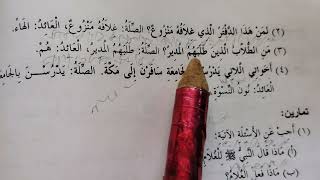 (٢) لِمَنْ هَذَا الدَّفْتَرُ الَّذِي غِلَافُهُ مَنْزُوعٌ؟ الصِّلَةُ: غِلَافُهُ مَنْزُوعٌ، الْعَائِدُ: الْهَاءُ.
(٣) مَنِ الطُّلَّابُ الَّذِينَ طَلَبَهُمُ الْمُدِيرُ؟ الصِّلَةُ: طَلَبَهُمُ الْمُدِيرُ، الْعَائِدُ: هُمْ.
(٤) أَخَوَاتِي اللَّاتِي يَدْرُسْنَ جَامِعَةِ سَافَرْنَ إِلَى مَكَّةَ. الصِّلَةُ: يَدْرُسْنَ بِالْجَامِعَةِ
الْعَائِدُ: نُونُ النِّسْوَةِ
تمارين:
(١) أَجِبْ عَنِ الْأَسْئِلَةِ الْآتِيَةِ:
(أ) مَاذَا قَالَ النَّبِيُّ ﷺ لِلْغُلَامِ
(ب) مَاذَا فَعَلَ الْغُلَامُ؟